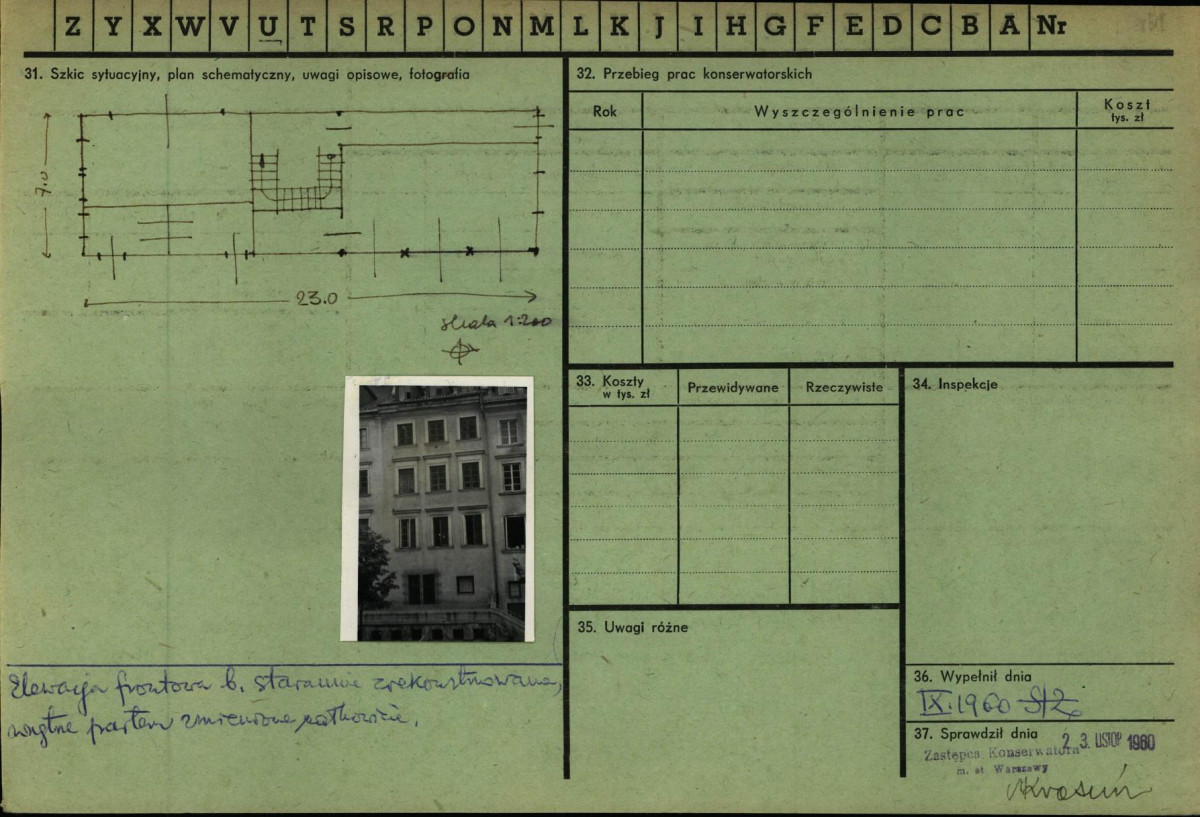 Z Y X W V U T S R P O N M L K J I H G F E D C B A Nr
31. Szkic sytuacyjny, plan schematyczny, uwagi opisowe, fotografia
7.0
23.0
skala 1:200
Elewacja frontowa b. starannie zrekonstruowana,
wnętrze parteru zmienione całkowicie.
32. Przebieg prac konserwatorskich
Rok
Wyszczególnienie prac
Koszt
tys. zł
33. Koszty
w tys. zł
Przewidywane
Rzeczywiste
34. Inspekcje
35. Uwagi różne
36. Wypełnił dnia
IX.1960
37. Sprawdził dnia
23. LISTOP 1960
Zastępca Konserwatora
m. st Warszawy